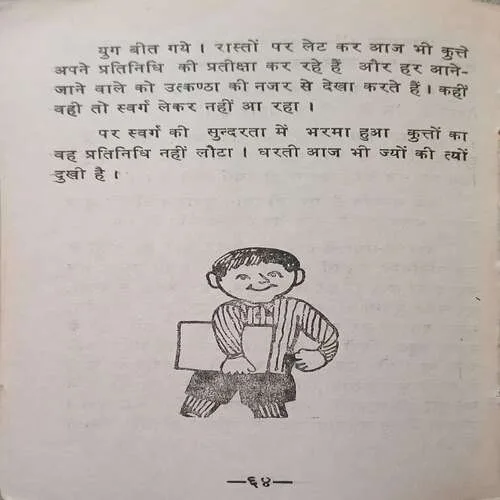 युग बीत गये । रास्तों पर लेट कर आज भी कुत्ते
अपने प्रतिनिधि की प्रतीक्षा कर रहे हैं और हर आने-
जाने वाले को उत्कण्ठा की नजर से देखा करते हैं । कहीं
वही तो स्वर्ग लेकर नहीं आ रहा ।
पर स्वर्ग की सुन्दरता में भरमा हुआ कुत्तों का
वह प्रतिनिधि नहीं लौटा । धरती आज भी ज्यों की त्यों
दुखी है ।
—६४—